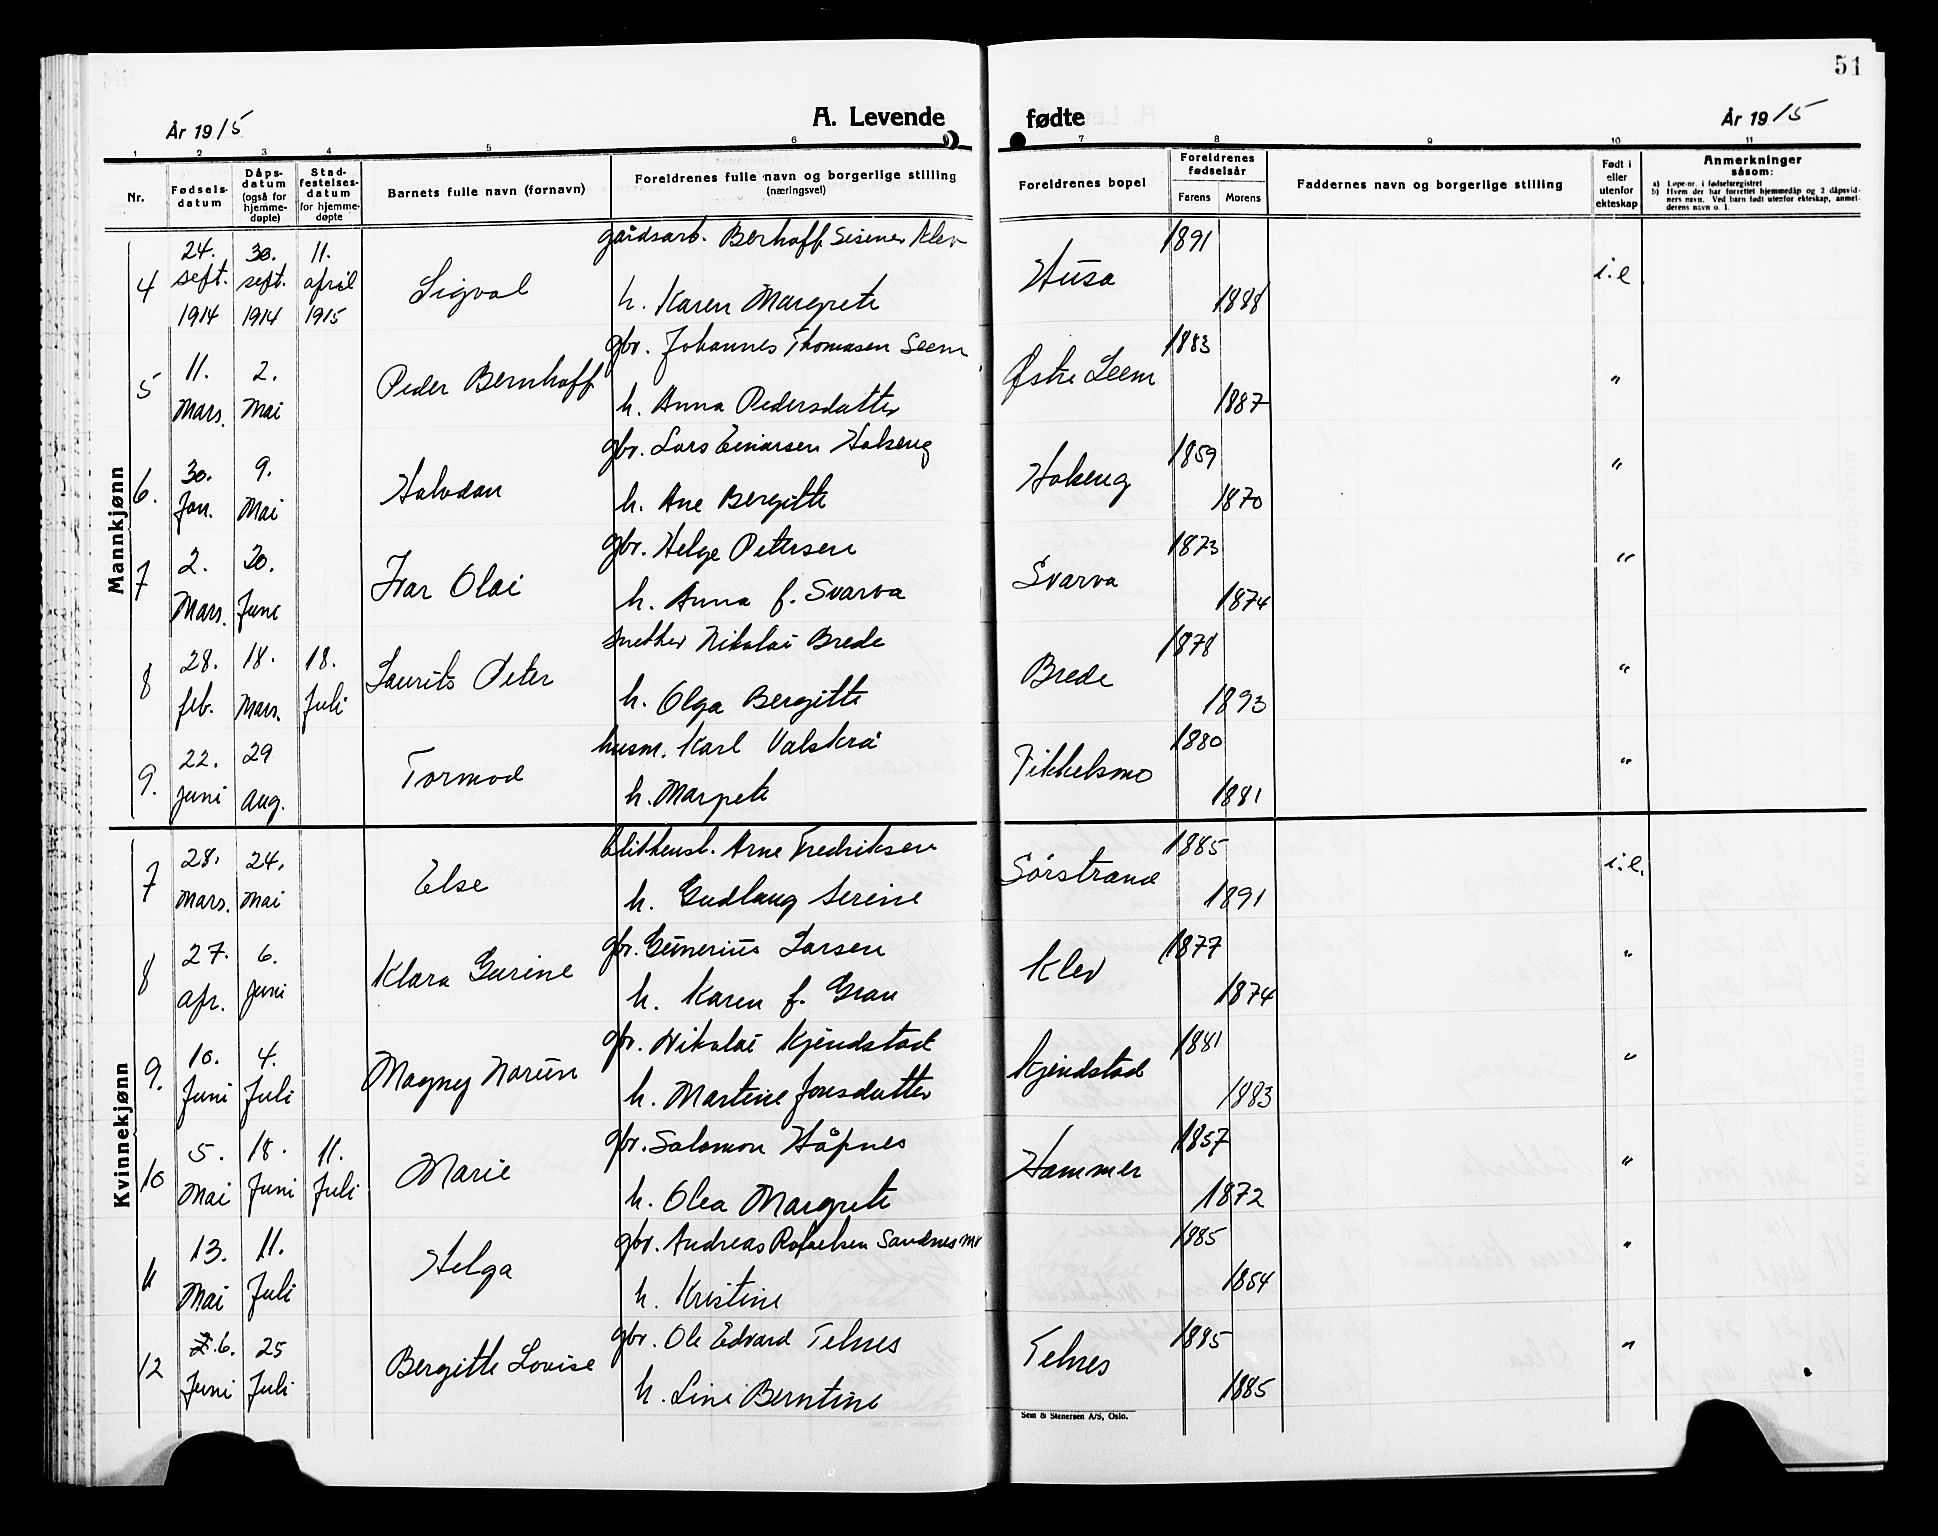 51
År 1915
A. Levende
fødte
År 1915
1 2 3 4 5 6 7 8 9 10 11
Nr.
Fødsels-
datum
Dåps-
datum
(også for
hjemme-
døpte)
Stad-
festelses-
datum
for hjemme-
døpte
Barnets fulle navn (fornavn)
Foreldrenes fulle navn og borgerlige stilling
(næringsvei)
Foreldrenes bopel
Foreldrenes
fødselsår
Farens Morens
Faddernes navn og borgerlige stilling
Født i
eller
utenfor
ekteskap
Anmerkninger
såsom:
a) Løpe-nr. i fødselsregistret
b) Hvem der har forrettet hjemmedåp og 2 dåpsvid-
ners navn. Ved barn født utenfor ekteskap, anmel-
derens navn o. l.
Mannkjønn
4 24. sept. 1914 30. sept. 1914 11. april 1915 Sigval gårdsarb. Berhoff Klev
h. Karen Margrete Husa 1891 1888 i.e.
5 11. Mars. 2. Mai Peder Bernhoff gbr. Johannes Thomasen Seem
h. Anna Pedersdatter Østre Seem 1883 1887 "
6. 30. Jan. 9. Mai Halvdan gbr. Lars Einarsen Hokeng
h. Ane Bergitte Hokeng 1859 1870 "
7 2. Mars. 20. Juni Ivar Olai gbr. Helge Petersen
h. Anna f. Svarva Svarva 1873 1874 "
8 28. feb. 18. Mars. 18. Juli Laurits Peter snekker Nikolai Brede
h. Olga Bergitte Brede 1878 1893 "
9. 22. juni 29 aug. Tormod husm. Karl Valskrå
h. Margrete Fikkelsmo 1880 1881 "
Kvinnekjønn
7 28. Mars. 24. Mai Else blikkensl. Arne Fredriksen
h. Gudlaug Serine Sørstrand 1885 1891 i.e.
8 27. apr. 6. juni Klara Gurine gbr. Gunerius Larsen
h. Karen f. Grau Klev 1877 1874 "
9. 10. Juni 4. Juli Magny Norun gbr. Nikolai Kjendstad
h. Martine Jonsdatter Kjendstad 1881 1883 "
10 5. Mai 18. Juni 11. Juli Marie gbr. Salomon Håpnes
h. Olea Margrete Hammer 1857 1872 "
11 13. Mai 11. Juli Helga gbr. Andreas Rafaelsen Sandnesmo
h. Kristine 1885 1854 "
12 6. Juni 25 Juli Bergitte Lovise gbr. Ole Edvard Telnes
h. Line Berntine Telnes 1885 1885 "
Sem & Stenersen A/S, Oslo.